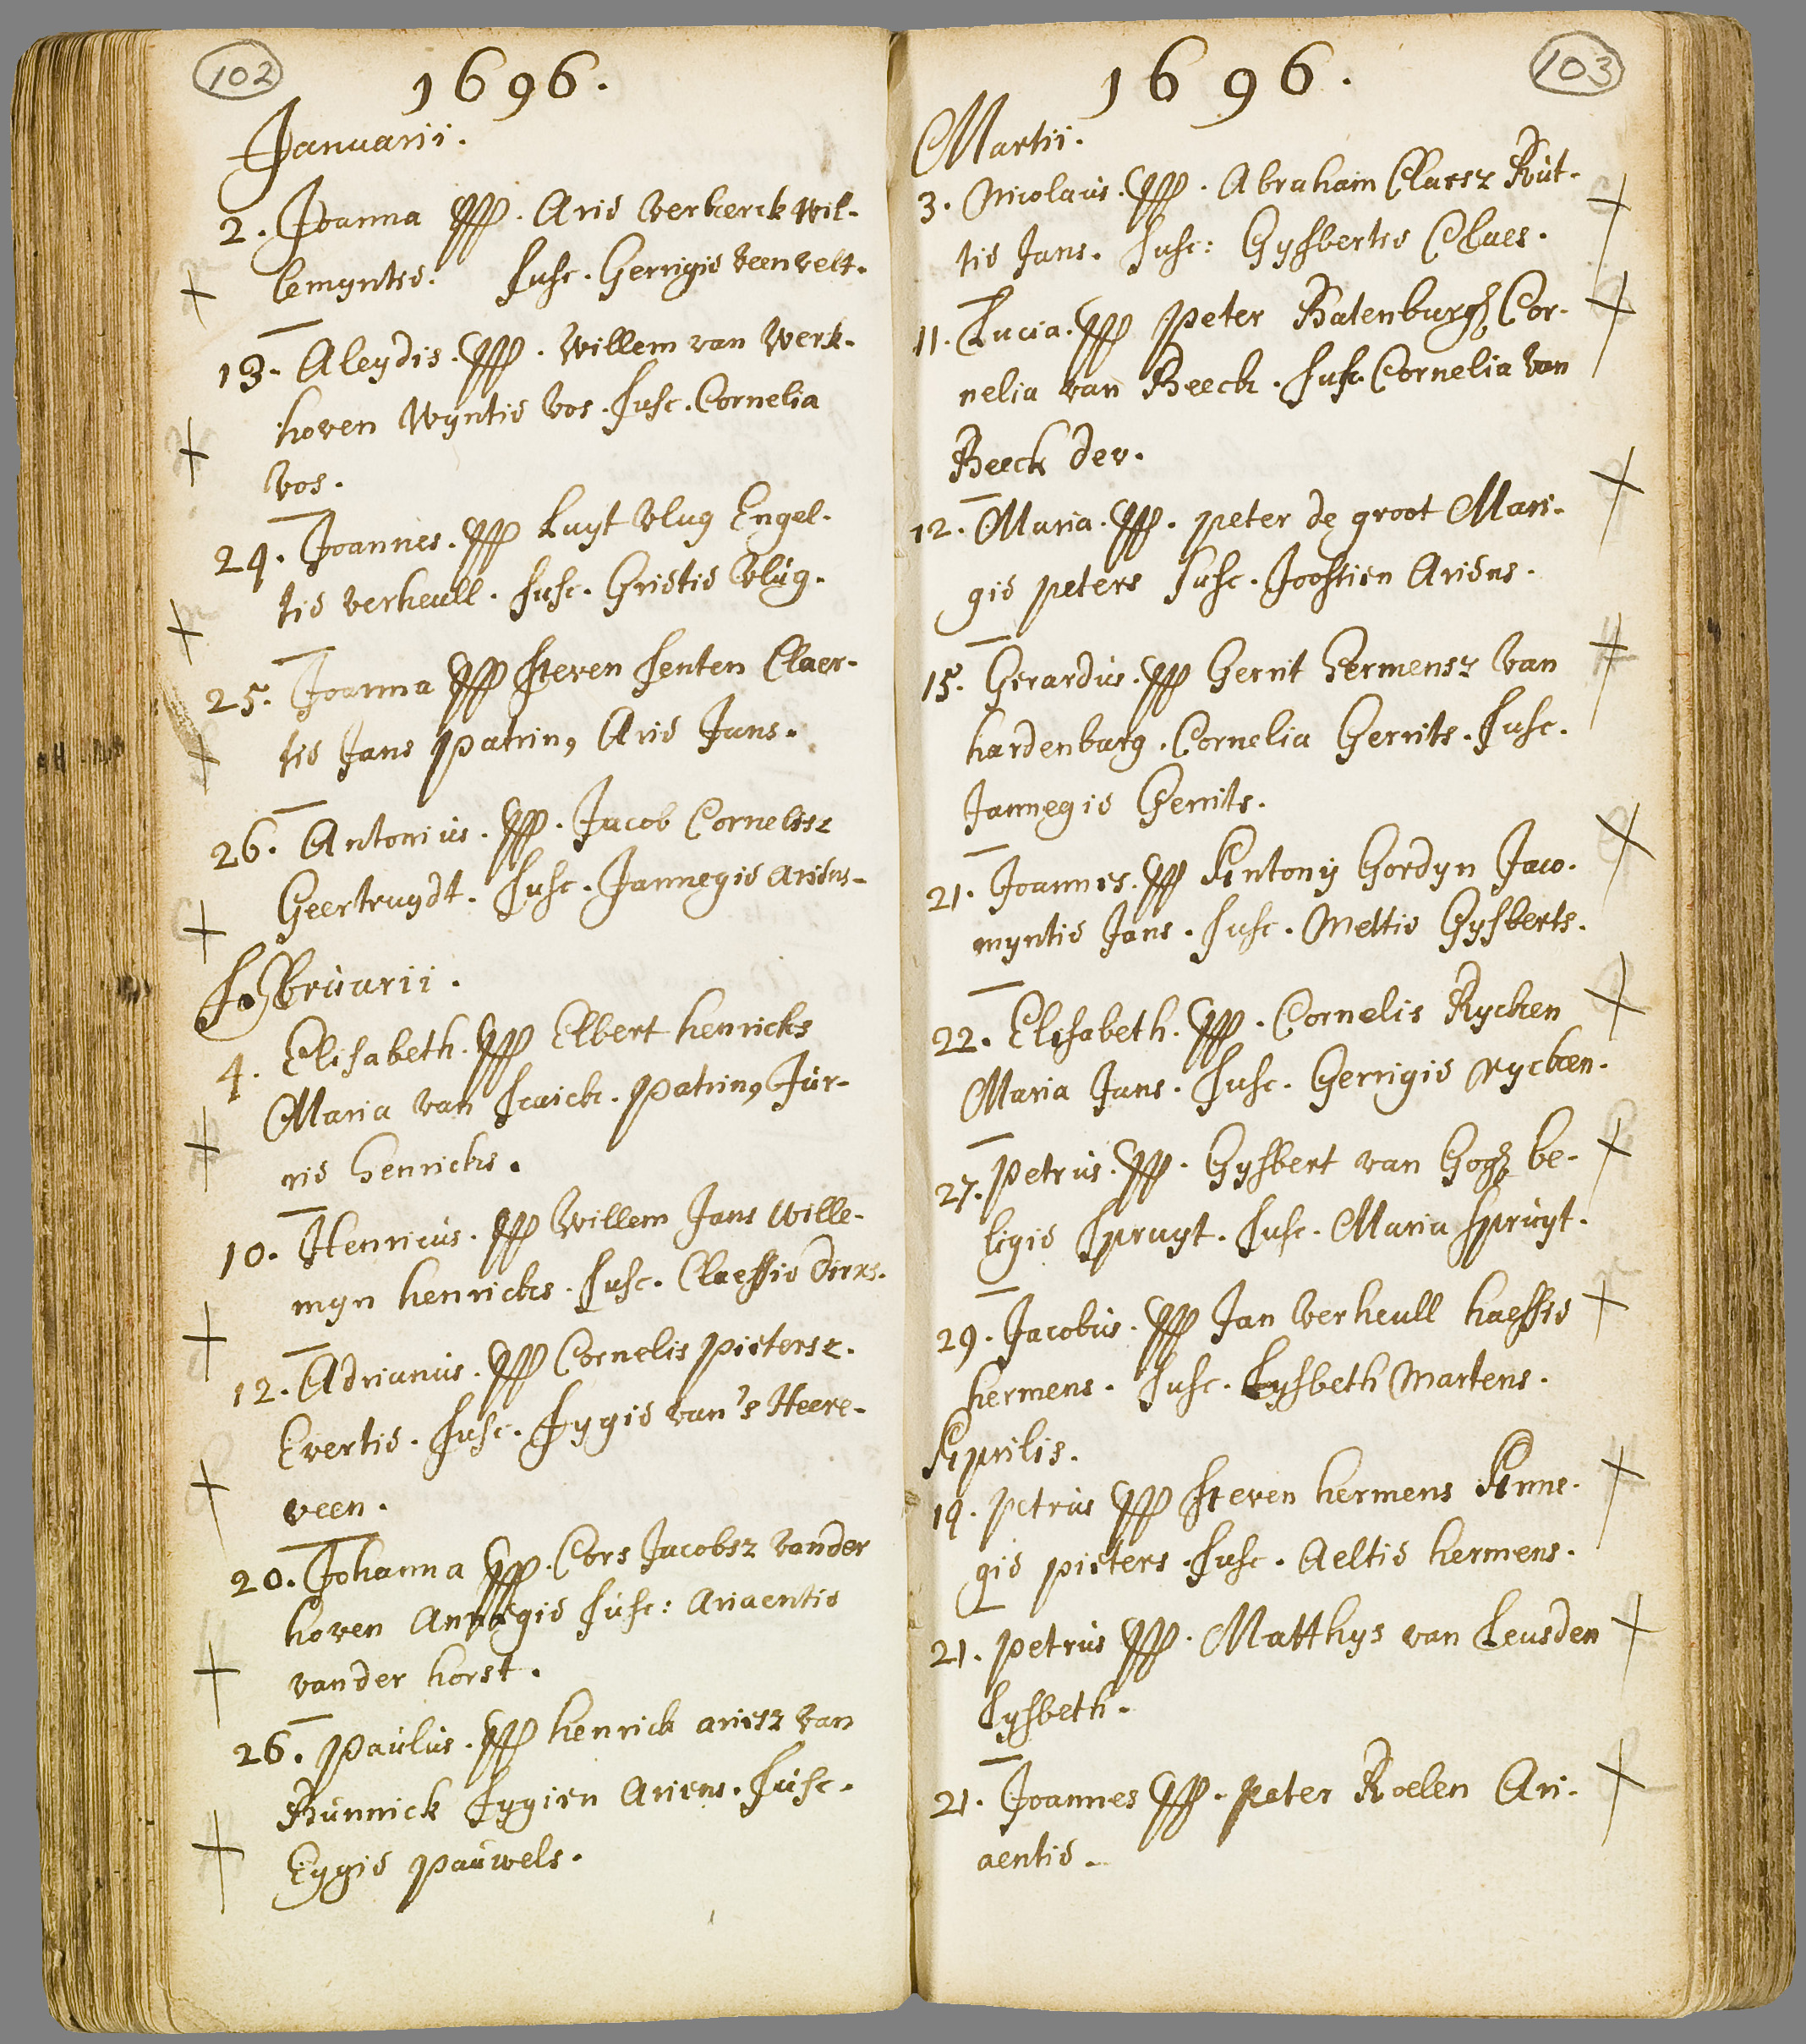 102
1696.
Januarii.
2. Joanna Pp. Arie verkerck wil-
lemyntie. Susc. Gerrigie veenvelt.
13. Aleydis. Pp. Willem van Werk-
hoven Wyntie Vos. Susc. Cornelia
Vos.
24. Joannes. Pp Luyt Vlug Engel-
tie verheull. Susc. Grietie Vlúg.
25. Joanna Pp Steven Senten Claer-
tie Jans patrin9 Arie Jans.
26. Antoniús. Pp. Jacob Cornelisz
Geertruydt. Susc. Jannegie Ariens.
Februarii.
4. Elisabeth. Pp Elbert henricks
Maria van Scaick. patrin9 Júr-
rie henricks.
10. Henricús. Pp Willem Jans Wille-
myn henricks. Susc. Claessie Dircs.
12. Adrianús. Pp Cornelis pietersz.
Evertie. Susc. Fygie van's Heere-
veen.
20. Johanna Pp. Cors Jacobsz vander
hoven Annigie Súsc: Ariaentie
vander horst.
26. paúlús. Pp henrick ariesz van
Búnnick Fygien Ariens. Súsc.
Eygie paúwels.
103
1696.
Martii.
3. Nicolaús. Pp. Abraham Claesz Rút-
tie Jans. Susc: Gysbertie Claes.
11. Lucia. Pp peter Batenburgh Cor-
nelia van Beeck. Susc. Cornelia van
Beeck der.
12. Maria. Pp. peter de groot Mari-
gie peters Susc. Joostien Ariens.
15. Gerardús. Pp Gerrit Hermensz van
hardenburg. Cornelia Gerrits. Susc.
Jannegie Gerrits.
21. Joannes. Pp Antony Gordyn Jaco-
myntie Jans. Susc. Mettie Gysberts.
22. Elisabeth. Pp. Cornelis Rycken
Maria Jans. Susc. Gerrigie Rycken.
27. petrús. Pp. Gysbert van Gogh be-
ligie Spruyt. Susc. Maria Sprúyt.
29. Jacobús. Pp Jan Verheull haessie
hermens. Susc. Lysbeth Martens.
Aprilis.
19. petrús Pp Steven hermens Anne-
gie pieters. Susc. Aeltie hermens.
21. petrús Pp. Matthys van Leusden
Lysbeth.
21. Joannes Pp. peter Roelen Ari-
aentie.